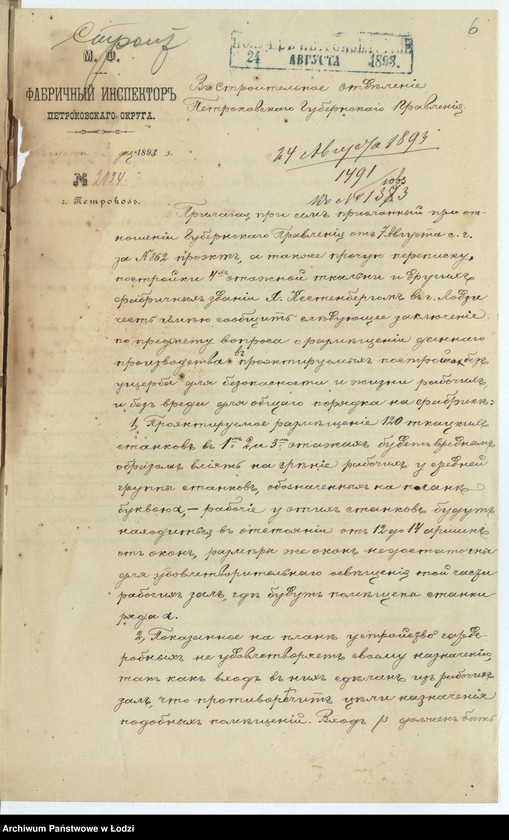 Строит
6
М. Ф.
ФАБРИЧНЫЙ ИНСПЕКТОРЪ
ПЕТРОКОВСКАГО ОКРУГА.
24 АВГУСТА 1893.
Въ Строительное отдѣленіе
Петроковскаго Губернскаго Правленія
24 Августа 1893
1491
Августа 1893 г.
№ 2034
г. Петроковъ.
Прилагая при семъ присланный при от-
ношеніи Губернскаго Правленія отъ 7 Августа с. г.
за № 862 проэктъ, а также прочую переписку,
постройки 4хъ этажной ткальни и другихъ
фабричныхъ зданій Л. Кестенбергомъ въ г. Лодзи
честь имѣю сообщить слѣдующее заключеніе
по предмету вопроса о размѣщеніи даннаго
производства въ проэктируемыхъ постройкахъ безъ
ущерба для безопасности и жизни рабочихъ
и безъ вреда для общаго порядка на фабрикѣ:
1, Проэктируемое размѣщеніе 120 ткацкихъ
станковъ въ 1мъ 2, и 3мъ этажахъ будетъ вреднымъ
образомъ вліять на зрѣніе рабочихъ у средней
группы станковъ, обозначенныхъ на планѣ
буквою α, – рабочіе у этихъ станковъ будутъ
находиться въ отстояніи отъ 12 до 14 аршинъ
отъ оконъ, размѣры же оконъ недостаточны
для удовлетворительнаго освѣщенія той части
рабочихъ залъ, гдѣ будутъ помѣщены станки
ряда α.
2, Показанное на планѣ устройство гарде-
робныхъ не удовлетворяетъ своему назначенію,
такъ какъ входъ въ нихъ сдѣланъ изъ рабочихъ
залъ, что противорѣчитъ цѣли назначенія
подобныхъ помѣщеній. Входъ β долженъ быть
Archiwum Państwowe w Łodzi